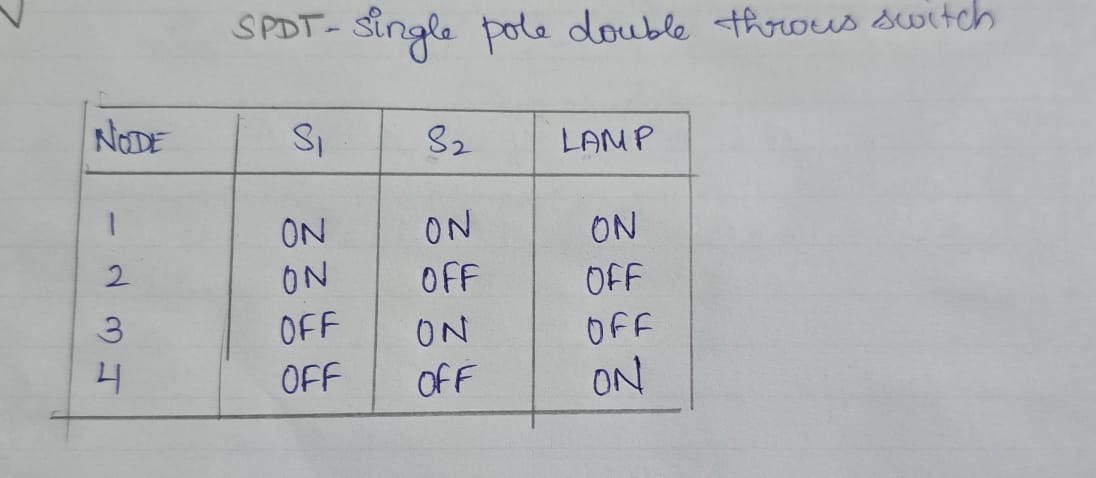 SPDT - Single pole double throws switch
NODE S1 S2 LAMP
1 ON ON ON
2 ON OFF OFF
3 OFF ON OFF
4 OFF OFF ON